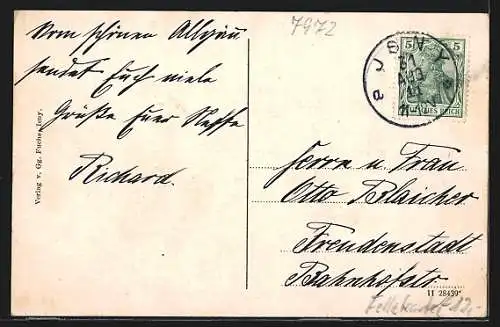 7972
Vom schönen Allgäu
sendet Euch viele
Grüße Euer Neffe
Richard.
Verlag v. Gg. Fuchs, Isny.
ISNY
31
AUG
5 5
DEUTSCHES REICH
Herrn u. Frau
Otto Blaicher
Freudenstadt
Bahnhofstr.
11 28439
12,-